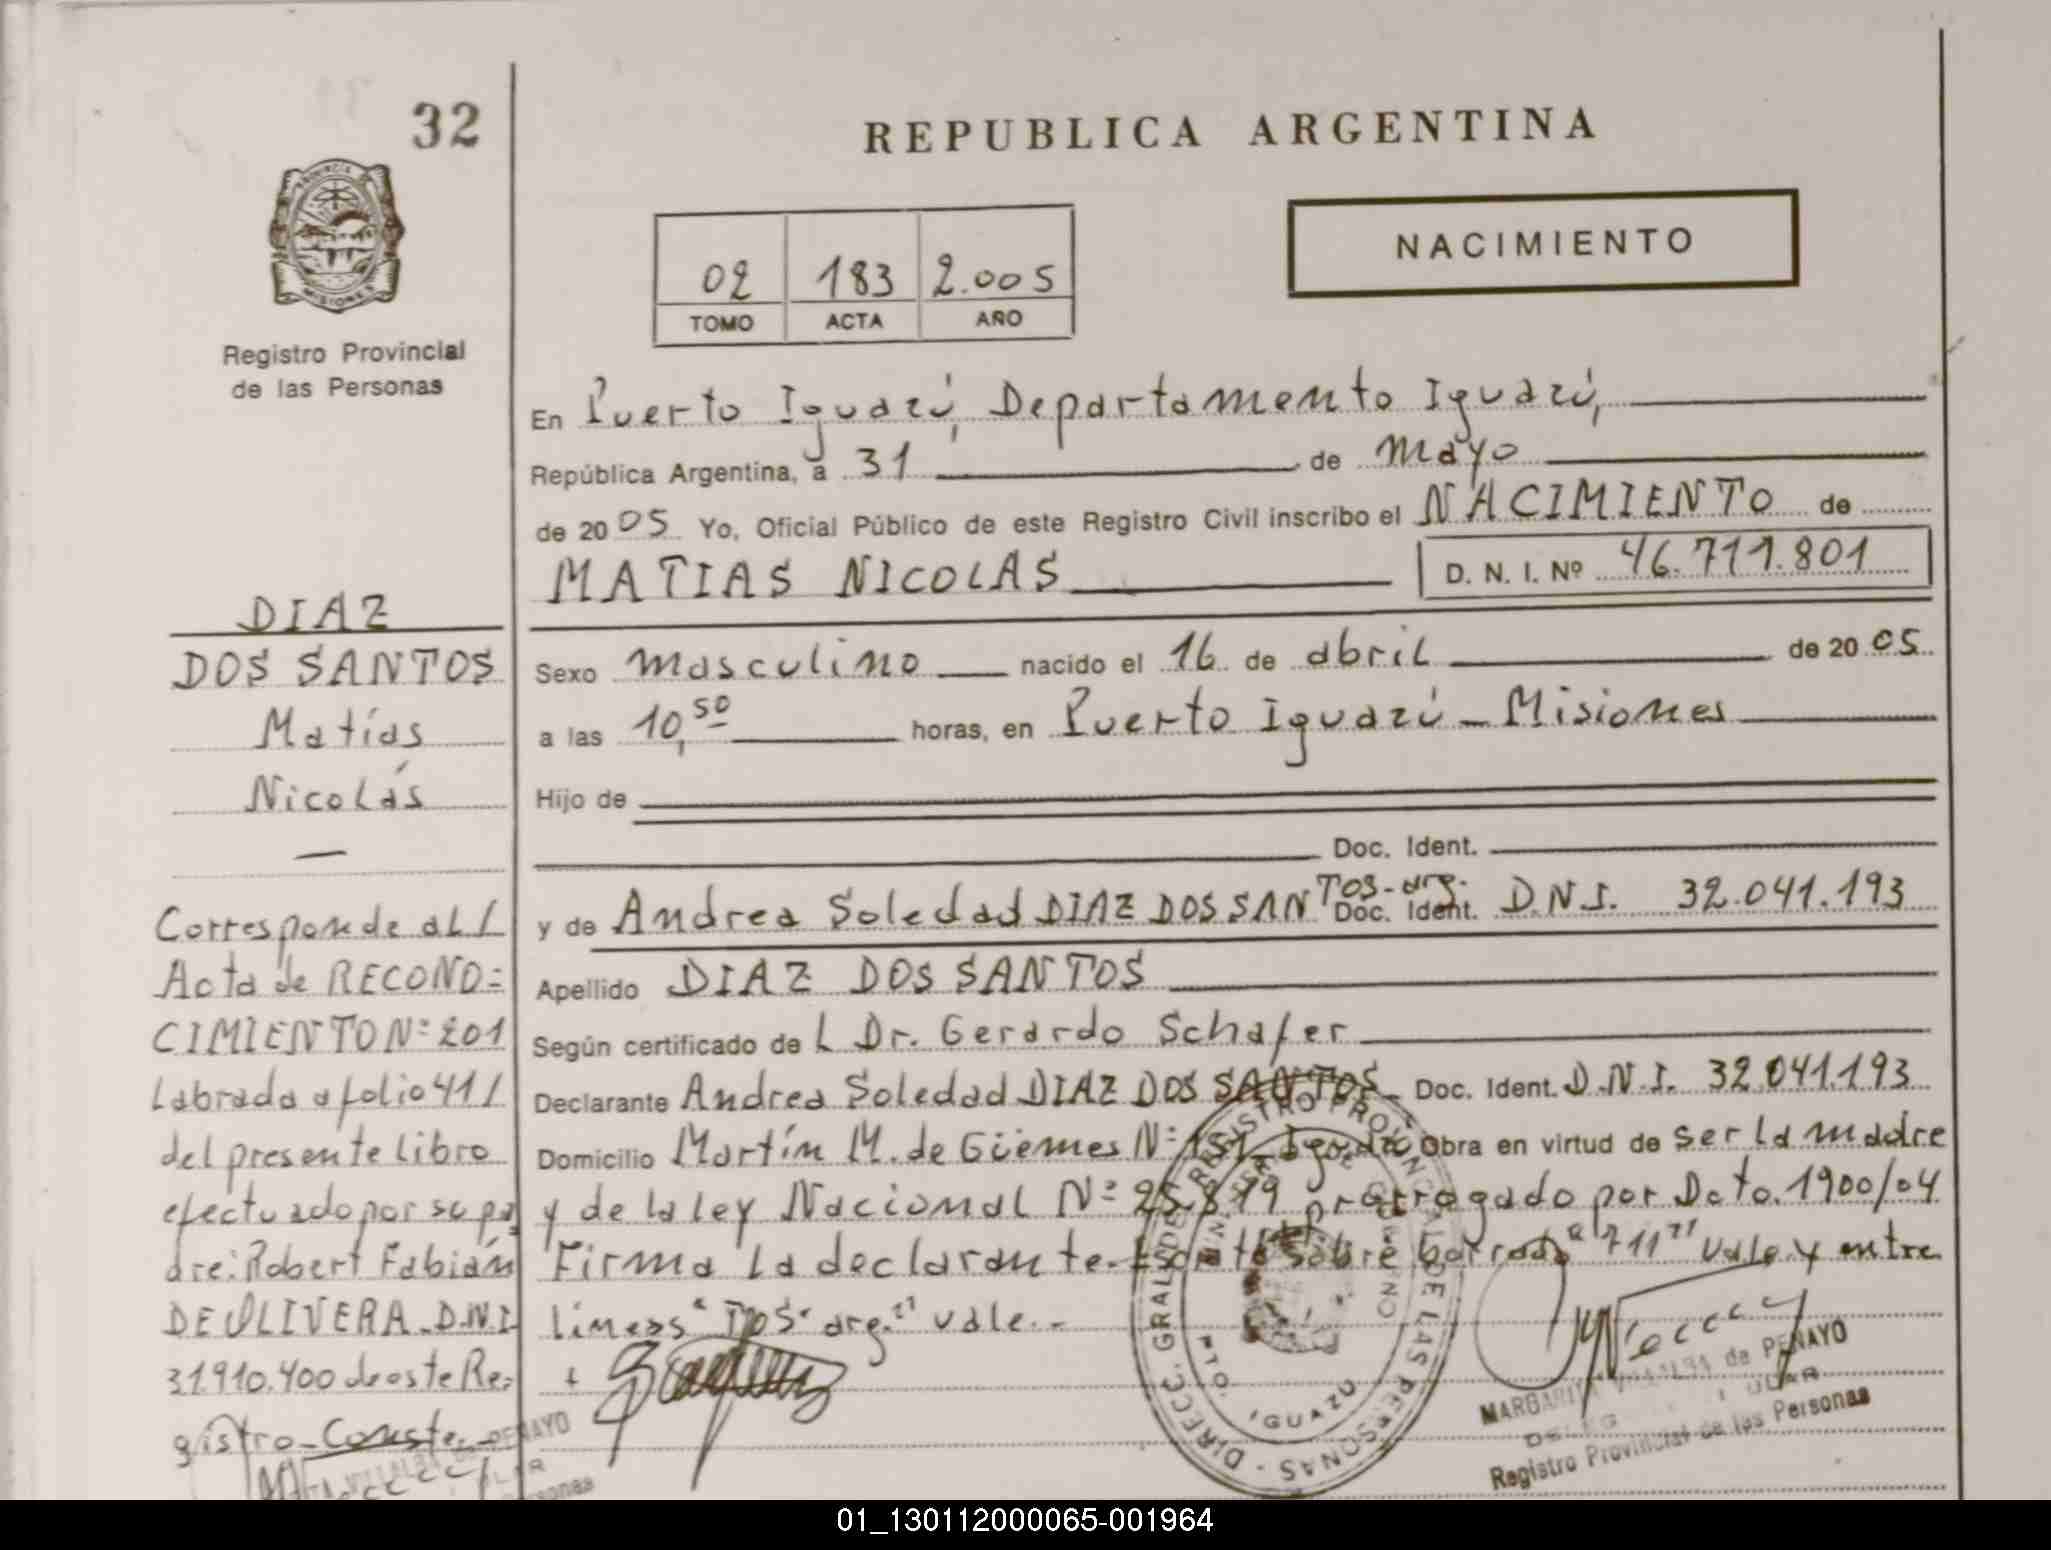 32
REPUBLICA ARGENTINA
PROVINCIA DE
MISIONES
Registro Provincial
de las Personas
02 183 2.005
TOMO ACTA AÑO
NACIMIENTO
En Puerto Iguazú, Departamento Iguazú,
República Argentina, a 31 de mayo
de 2005 Yo, Oficial Público de este Registro Civil inscribo el NACIMIENTO de
MATIAS NICOLAS D. N. I. Nº 46.711.801
Sexo masculino nacido el 16 de abril de 2005
a las 10,50 horas, en Puerto Iguazú - Misiones
Hijo de
Doc. Ident.
y de Andrea Soledad DIAZ DOS SANTOS-arg. Doc. Ident. D.N.I. 32.041.193
Apellido DIAZ DOS SANTOS
Según certificado del Dr. Gerardo Schafer
Declarante Andrea Soledad DIAZ DOS SANTOS Doc. Ident. D.N.I. 32.041.193
Domicilio Martín M. de Güemes Nº 151 Iguazú Obra en virtud de ser la madre
y de la ley Nacional Nº 25.819 prorrogado por Dcto. 1900/04
Firma la declarante. Escrito sobre borrado "711" vale y entre
líneas "TOS-arg." vale.-
DIAZ
DOS SANTOS
Matías
Nicolás
Corresponde al
Acta de RECONO=
CIMIENTO Nº 201
labrada a folio 41
del presente libro
efectuado por su pa
dre: Robert Fabián
DE OLIVERA. D.N.I.
31.910.400 de este Re=
gistro-Conste.-
DIRECC. GRAL. DEL REGISTRO PROVINCIAL DE LAS PERSONAS
PTO. IGUAZU
MARGARITA VILLALBA de PENAYO
Registro Provincial de las Personas
VILLALBA de PENAYO
01_130112000065-001964